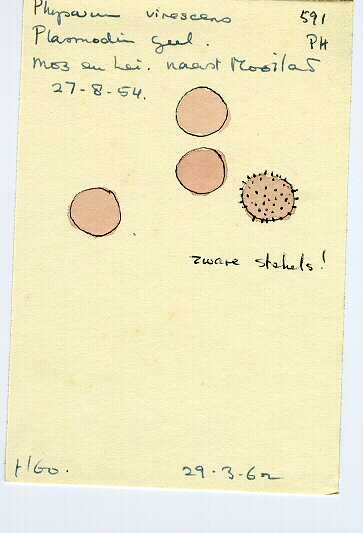 Physarum virescens 591
Plasmodium geel. PH
mos en hei. naast Mooilad
27-8-54.
zware stekels!
H60. 29-3-62